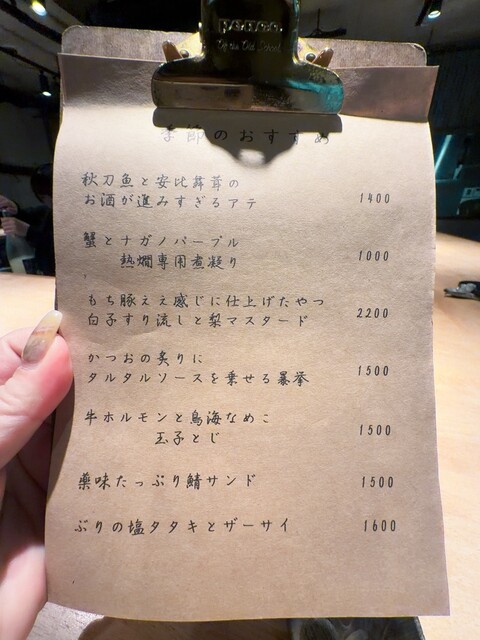 季節のおすすめ
秋刀魚と安比舞茸の
お酒が進みすぎるアテ 1400
蟹とナガノパープル
熱燗専用煮凝り 1000
もち豚ええ感じに仕上げたやつ
白子すり流しと梨マスタード 2200
かつおの炙りに
タルタルソースを乗せる暴挙 1500
牛ホルモンと鳥海なめこ
玉子とじ 1500
薬味たっぷり鯖サンド 1500
ぶりの塩タタキとザーサイ 1600